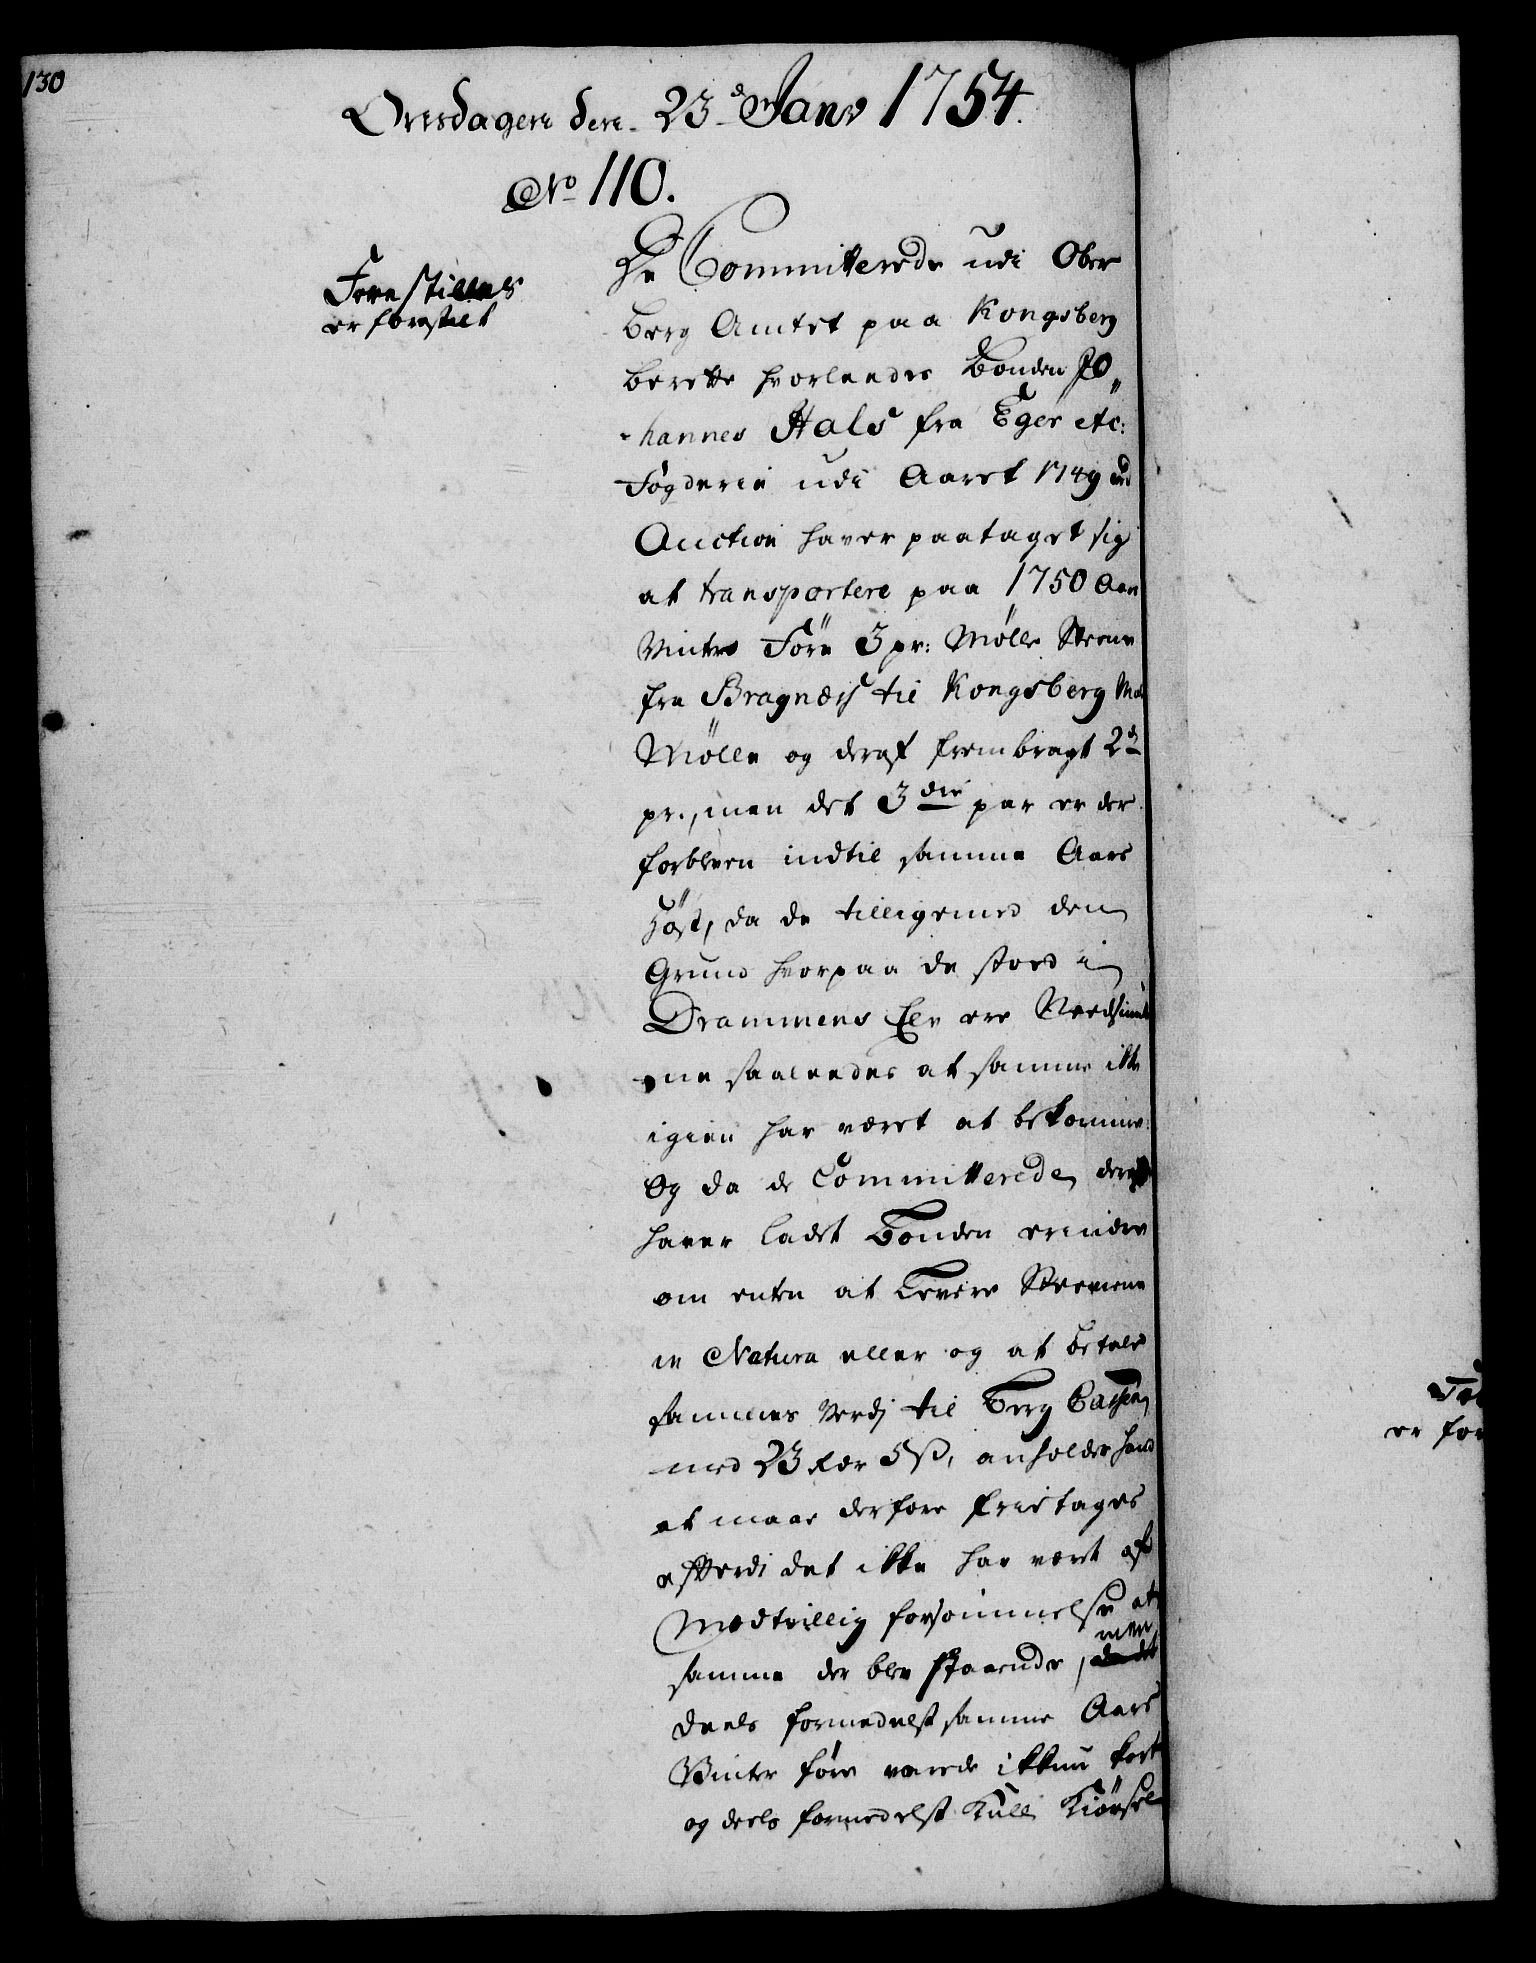 130
Onsdagen den 23de Janv 1754.
No 110.
Forestilles
er forestilt
De Committerede udi Ober
Berg Amtet paa Kongsberg
berette hvorleedes Bonden Jo„
hannes Hals fra Eger etc:
Fogderie udi Aaret 1749 ved
Auction haver paataget sig
at transportere paa 1750 Aars
Vinter Före 3 pr: Mölle Steene
fra Bragnæs til Kongsberg
Mölle og deraf frembragt 2de
pr., men det 3die par er der
forbleven indtil samme Aars
Höst, da de tilligemed den
Grund hvorpaa de stoed i
Drammens Elv ere
saaleedes at samme ikke
igien har været at bekomme.
Og da de Committerede
haver ladet Bonden erindre
om enten at Levere Steenene
in Natura eller og at betale
sammes Verdj til Berg Cassen
med 23 rdr 5 ß, anholder hand
at maae derfore frietages
efterdi det ikke har været af
Modtvillig forsömmelse at
samme der blev staaende, men
deels formedelst samme Aars
Vinter före varede ikkun kort
og deels formedelst Kull Kiörsel
er for